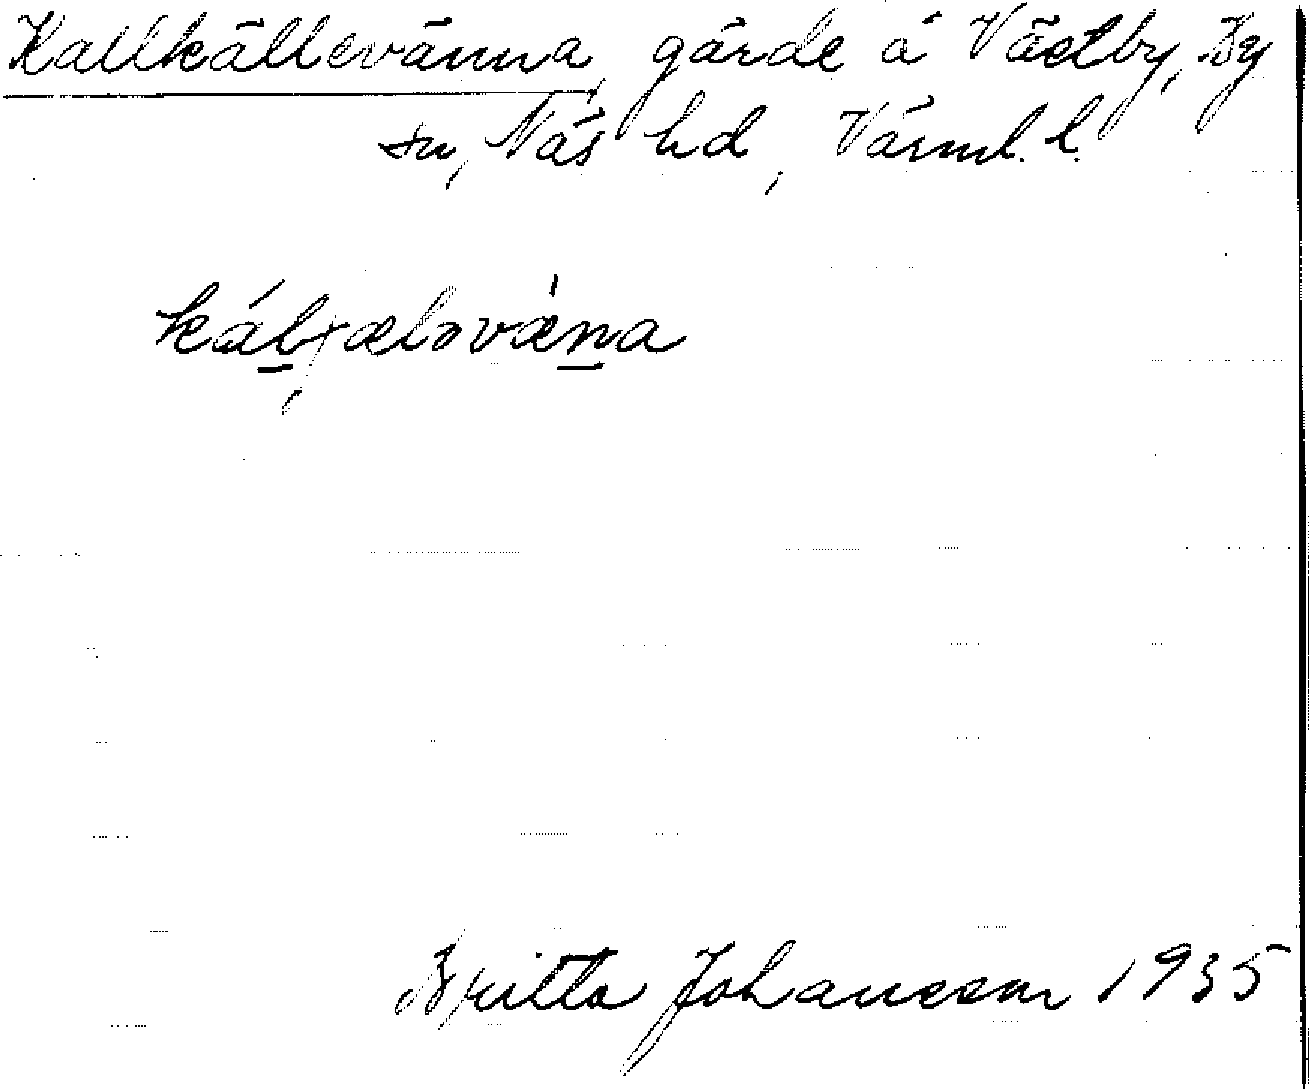 Kallkällevänna, gärde å Västby, By
sn, Näs hd, Värml. l.
Britta Johansson 1935